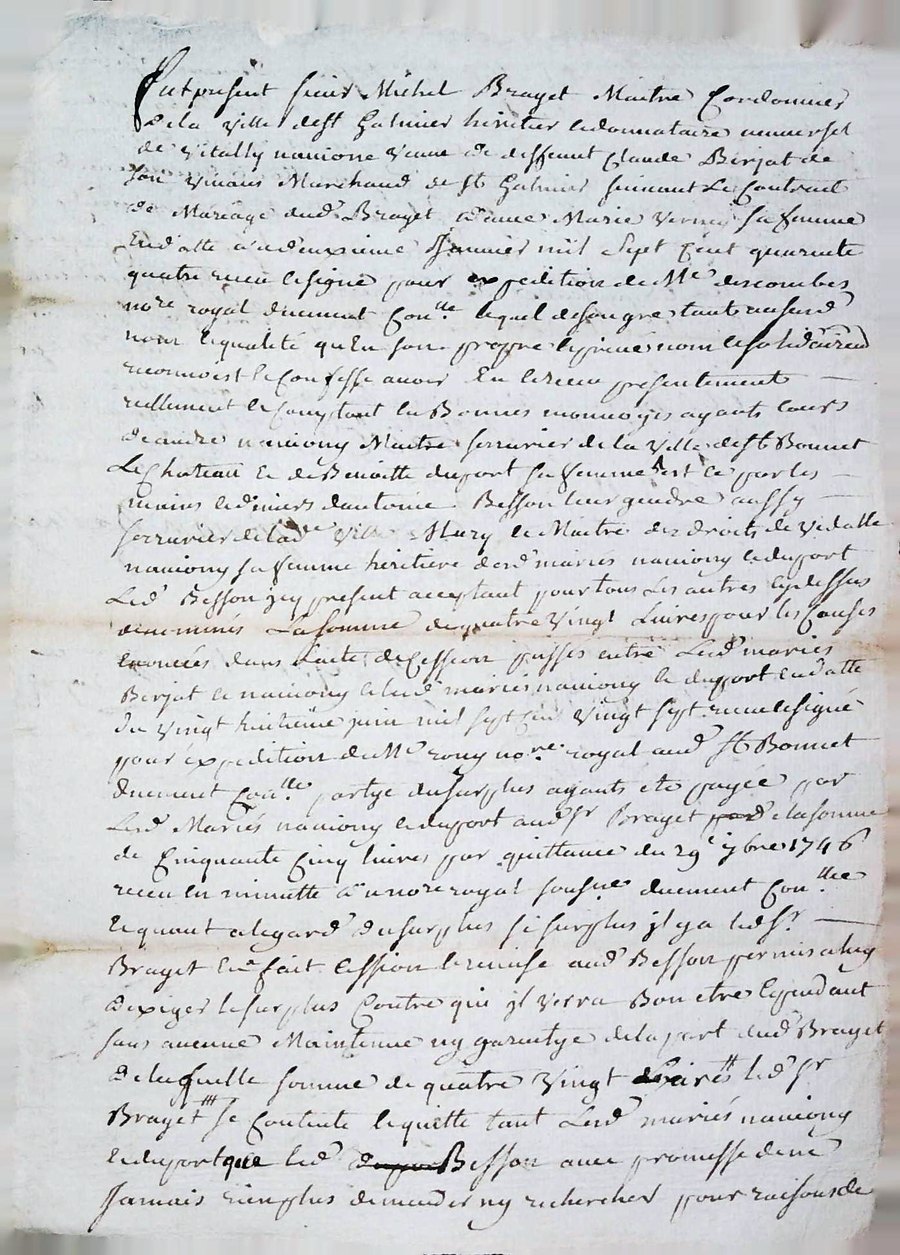 Fut present sieur Michel Brayet Maitre Cordonnier
de la ville de st Galmier heritier et donnataire universel
de Vitally navionne veuve de deffunt Claude Berjat de
son vivans Marchand de st Galmier suivant Le Contrait
de Mariage dud Brayet avec Marie Verney sa femme
En datte du deuxieme Janvier mil sept Cent quarente
quatre receu et signé pour expedition de Me descombes
nore royal duement Conlle lequel de son gre tant aususd
nom et qualité qu'En son propre et privé nom et solidairemt
reconnoist et Confesse avoir Eu et receu presentement
reellement et Comptant En Bonnes monnoyes ayants Cours
de andre naviony Maitre serrurier de la Ville de st Bonnet
Le Chateau et de Benoitte duport sa femme Est ce par les
mains et deniers dantoine Besson leur gendre aussy
serrurier de lade Ville Mary et Maitre des droits de Vidalle
naviony sa femme heritiere desd mariés naviony et duport
Led Besson icy present acceptant pour tous Les autres cydessus
denommés La somme de quatre Vingt Livres pour les Causes
enoncées dans L'acte de Cession passés entre Lesd mariés
Berjat et naviony et lesd mariés naviony et duport en datte
du Vingt huitième juin mil sept Cent Vingt sept receu et signé
pour expedition de Me rony nore royal aud st Bonnet
duement Conlle partye du surplus ayants eté payée par
Lesd Mariés naviony et duport aud sr Brayet de la somme
de Cinquante Cinq livres par quittance du 29e 7bre 1746
receu en minutte nore royal sousne duement Conllee
Et quant a legard du surplus si surplus jl y a led sr
Brayet En fait Cession et remise aud Besson permis a luy
d'exiger le surplus Contre qui jl verra Bon etre Cependant
sans aucune Maintenue ny garentye de la part dud Brayet
de laquelle somme de quatre Vingt Livres led sr
Brayet se Contente et quitte tant Lesd mariés naviony
et duport que led Besson avec promesse de ne
Jamais rien plus demander ny rechercher pour raisons de